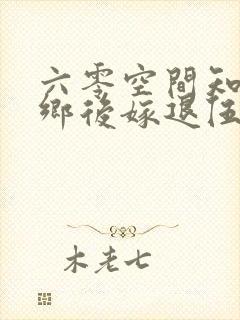 六零空間知
鄉後嫁退伍
木老七